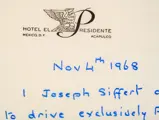 HOTEL EL PRESIDENTE
MEXICO, D.F. ACAPULCO
Nov 4th 1968
I Joseph Siffert
to drive exclusively